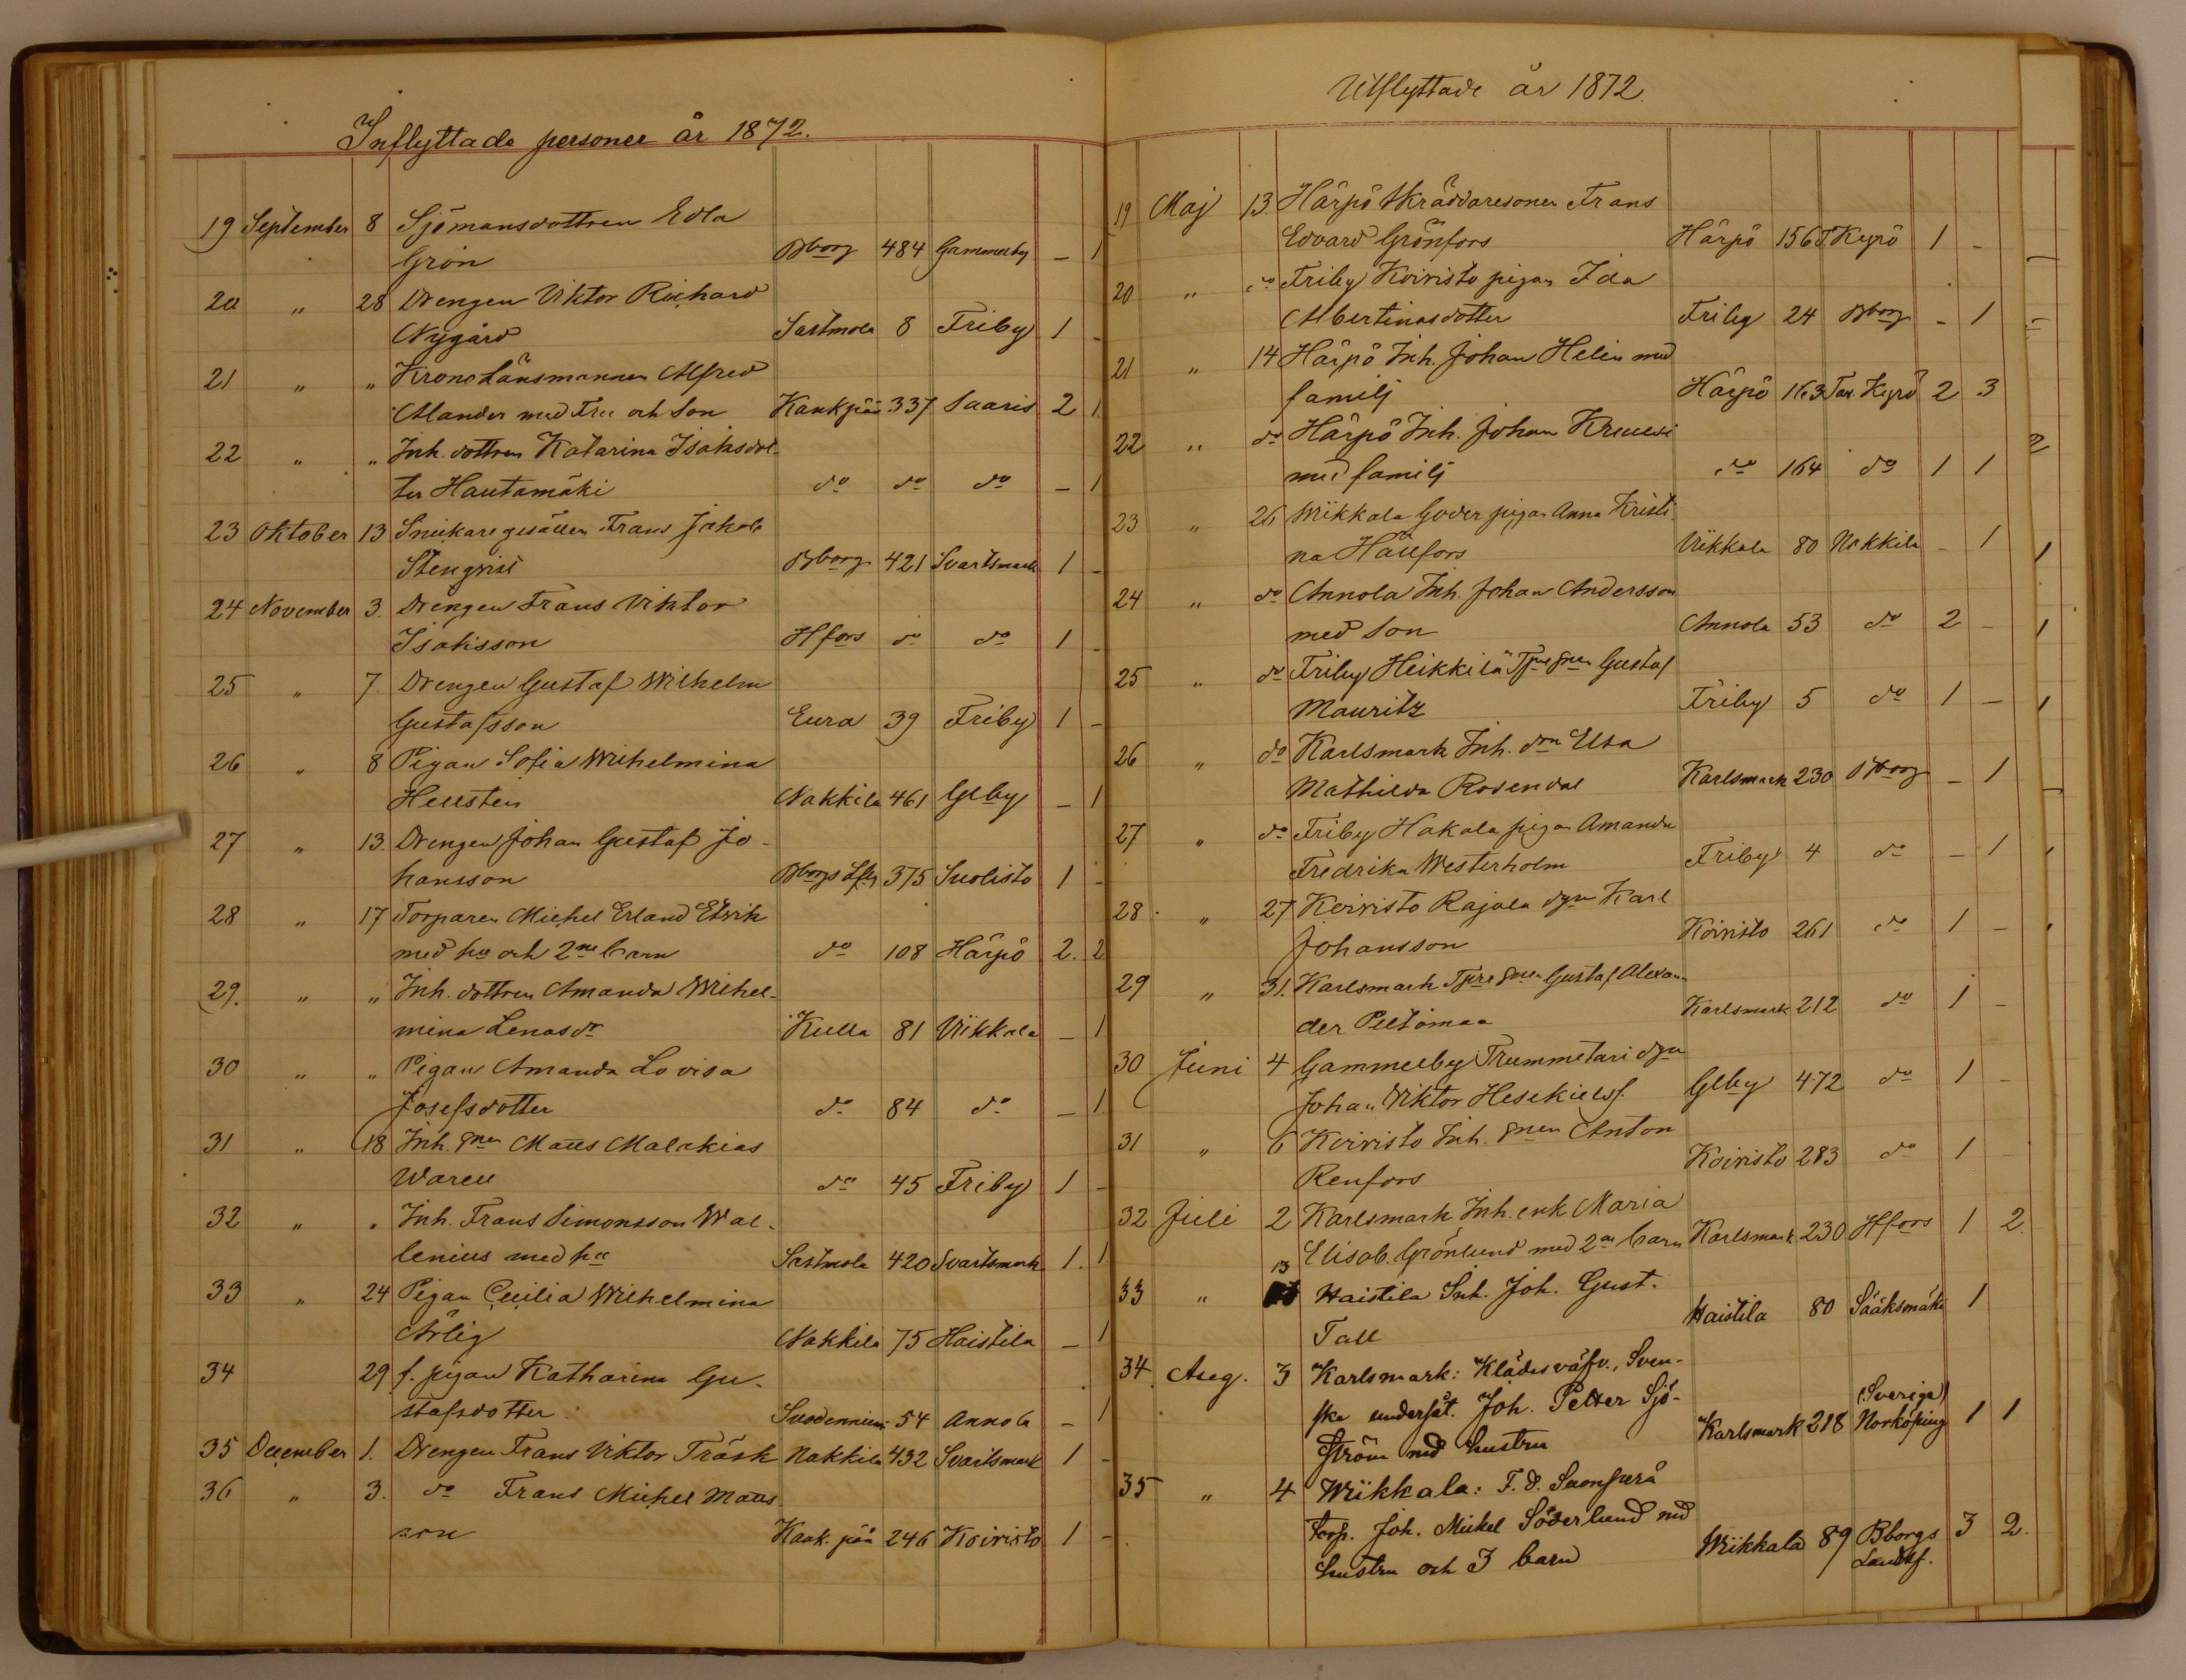 Inflyttade personer år 1872.
19 September 8 Sjömansdottren Edla
Grön Bborg 484 Gammelby - 1
20 " 28 Drengen Viktor Richard
Nygård Sastmola 8 Friby 1 -
21 " " Krono Länsmannen Alfred
Alander med Fru och Son Kankpää 337 Saaris 2 1
22 " " Inh. dottren Katarina Isaksdot-
ter Hautamäki do do do - 1
23 Oktober 13 Snickaregesällen Frans Jakob
Stenqvist Bborg 421 Svartsmark 1 -
24 November 3. Drengen Frans Viktor
Isaksson Hfors do do 1 -
25 " 7 Drengen Gustaf Wilhelm
Gustafsson Eura 39 Friby 1 -
26 " 8 Pigan Sofia Wilhelmina
Hellsten Nakkila 461 Glby - 1
27 " 13. Drengen Johan Gustaf Jo-
hansson Bborgs Lfs 375 Suolisto 1 -
28 " 17 Torparen Michel Erland Elvik
med hu och 2ne barn do 108 Härpö 2. 2
29. " " Inh. dottren Amanda Wilhel-
mina Lenasdr Kulla 81 Vikkala - 1
30 " " Pigan Amanda Lovisa
Josefsdotter do 84 do - 1
31 " 18 Inh. snen Matts Malakias
Waren do 45 Friby 1 -
32 " " Inh. Frans Simonsson Wal-
lenius med hu Sastmola 420 Svartsmark 1. 1
33 " 24 Pigan Cecilia Wilhelmina
Ärlig Nakkila 75 Haistila - 1
34 29 f. pigan Katharina Gu-
stafsdotter Suodenniemi 54 Annola - 1
35 December 1. Drengen Frans Viktor Träsk Nakkila 432 Svartsmark 1 -
36 " 3. do Frans Michel Matts
son Kank.pää 246 Koivisto 1 -
Utflyttade år 1872.
19 Maj 13. Härpö Skräddaresonen Frans
Edvard Grönfors Härpö 156 T. Kyrö 1 -
20 " do Friby Koivisto pigan Ida
Albertinasdotter Friby 24 Bborg - 1
21 " 14 Härpö Inh. Johan Helin med
familj Härpö 163 Tav. Kyrö 2 3
22 " do Härpö Inh. Johan
med familj do 164 do 1 1
23 " 26 Wikkala Goder pigan Anna Kristi-
na Hällfors Vikkala 80 Nakkila - 1
24 " do Annola Inh. Johan Andersson
med Son Annola 53 do 2 -
25 " do Friby Heikkilä Tpre snen Gustaf
Mauritz Friby 5 do 1 -
26 " do Karlsmark Inh. drn Elsa
Mathilda Rosendal Karlsmark 230 Bborg - 1
27 " do Friby Hakala pigan Amanda
Fredrika Westerholm Friby 4 do - 1
28 " 27 Koivisto Rajala dgn Karl
Johansson Koivisto 261 do 1 -
29 " 31. Karlsmark Tpre snen Gustaf Alexan-
der Peltomaa Karlsmark 212 do 1 -
30 Juni 4 Gammelby Trummetari dgn
Johan Viktor Hesekielsf. Glby 472 do 1 -
31 " 6 Koivisto Inh. snen Anton
Renfors Koivisto 283 do 1 -
32 Juli 2 Karlsmark Inh. enk Maria
Elisab. Grönlund med 2ne barn Karlsmark 230 Hfors 1 2
33 " 13 Haistila Inh. Joh. Gust.
Tall Haistila 80 Sääksmäki 1
34 Aug. 3 Karlsmark: Klädesväfv., Sven-
ska undersåt. Joh. Petter Sjö-
ström med hustru Karlsmark 218 (Sverige) Norköping 1 1
35 " 4 Wikkala: F. d. Suonperä
torp. Joh. Mickel Söderlund med
hustru och 3 barn Wikkala 89 Bborgs Landsf. 3 2.